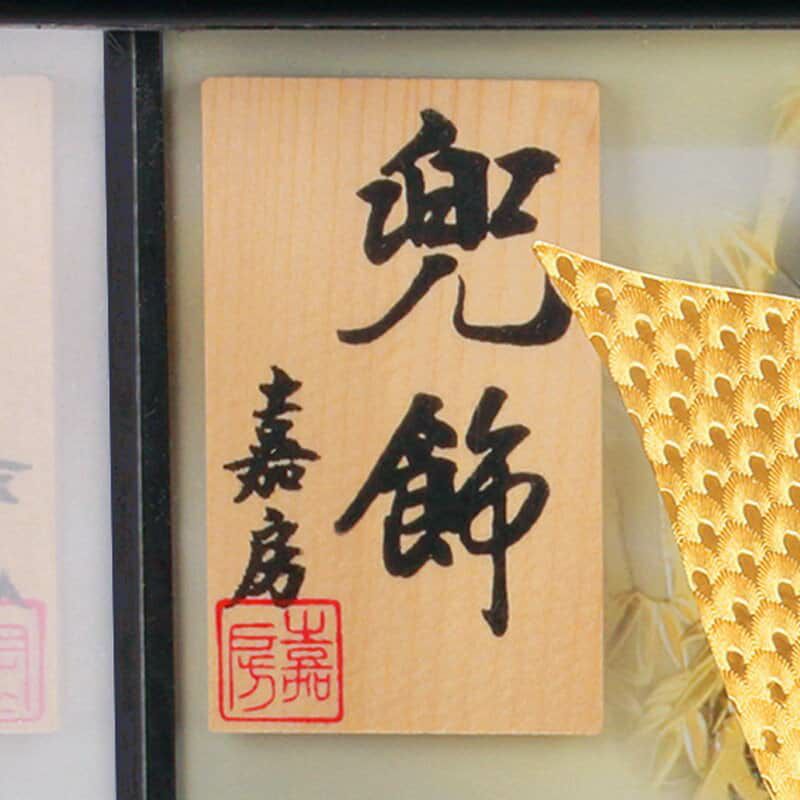 兜飾
嘉房
嘉房